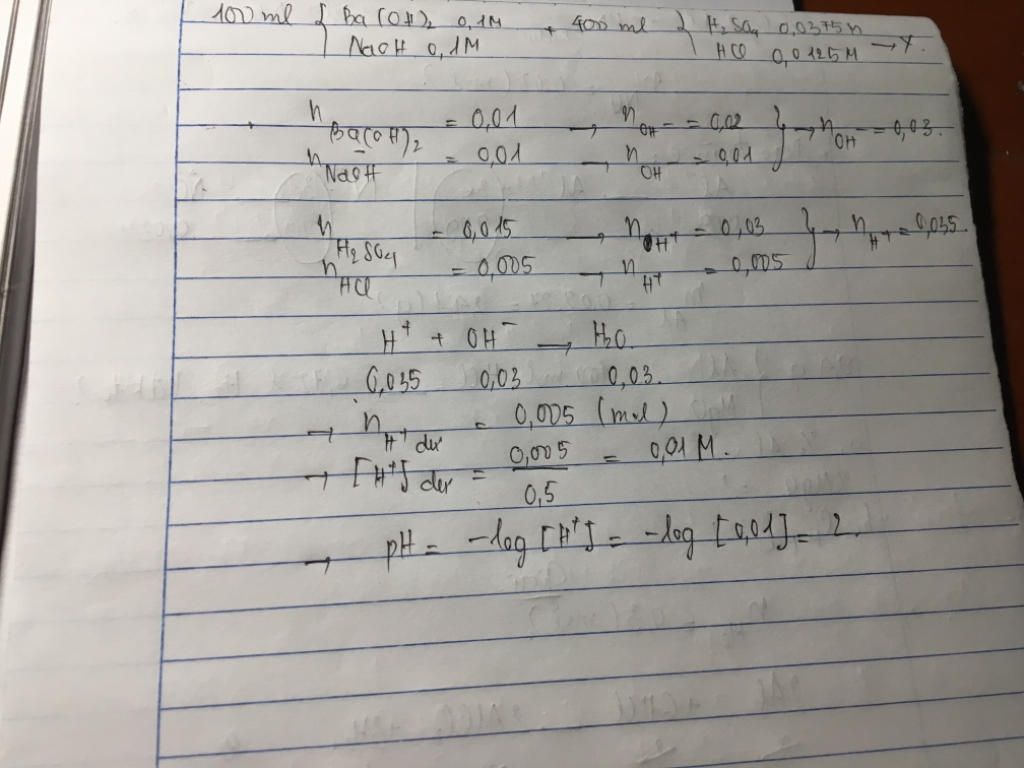 100 ml { Ba(OH)2 0,1M + 400 ml { H2SO4 0,0375M
NaOH 0,1M HCl 0,0125M → Y.
n Ba(OH)2 = 0,01 → n OH− = 0,02 } → n OH− = 0,03.
n NaOH = 0,01 → n OH− = 0,01
n H2SO4 = 0,015 → n H+ = 0,03 } → n H+ = 0,035.
n HCl = 0,005 → n H+ = 0,005
H+ + OH− → H2O.
0,035 0,03 0,03.
→ n H+ dư = 0,005 (mol)
→ [H+] dư = 0,005 / 0,5 = 0,01 M.
→ pH = −log [H+] = −log [0,01] = 2.